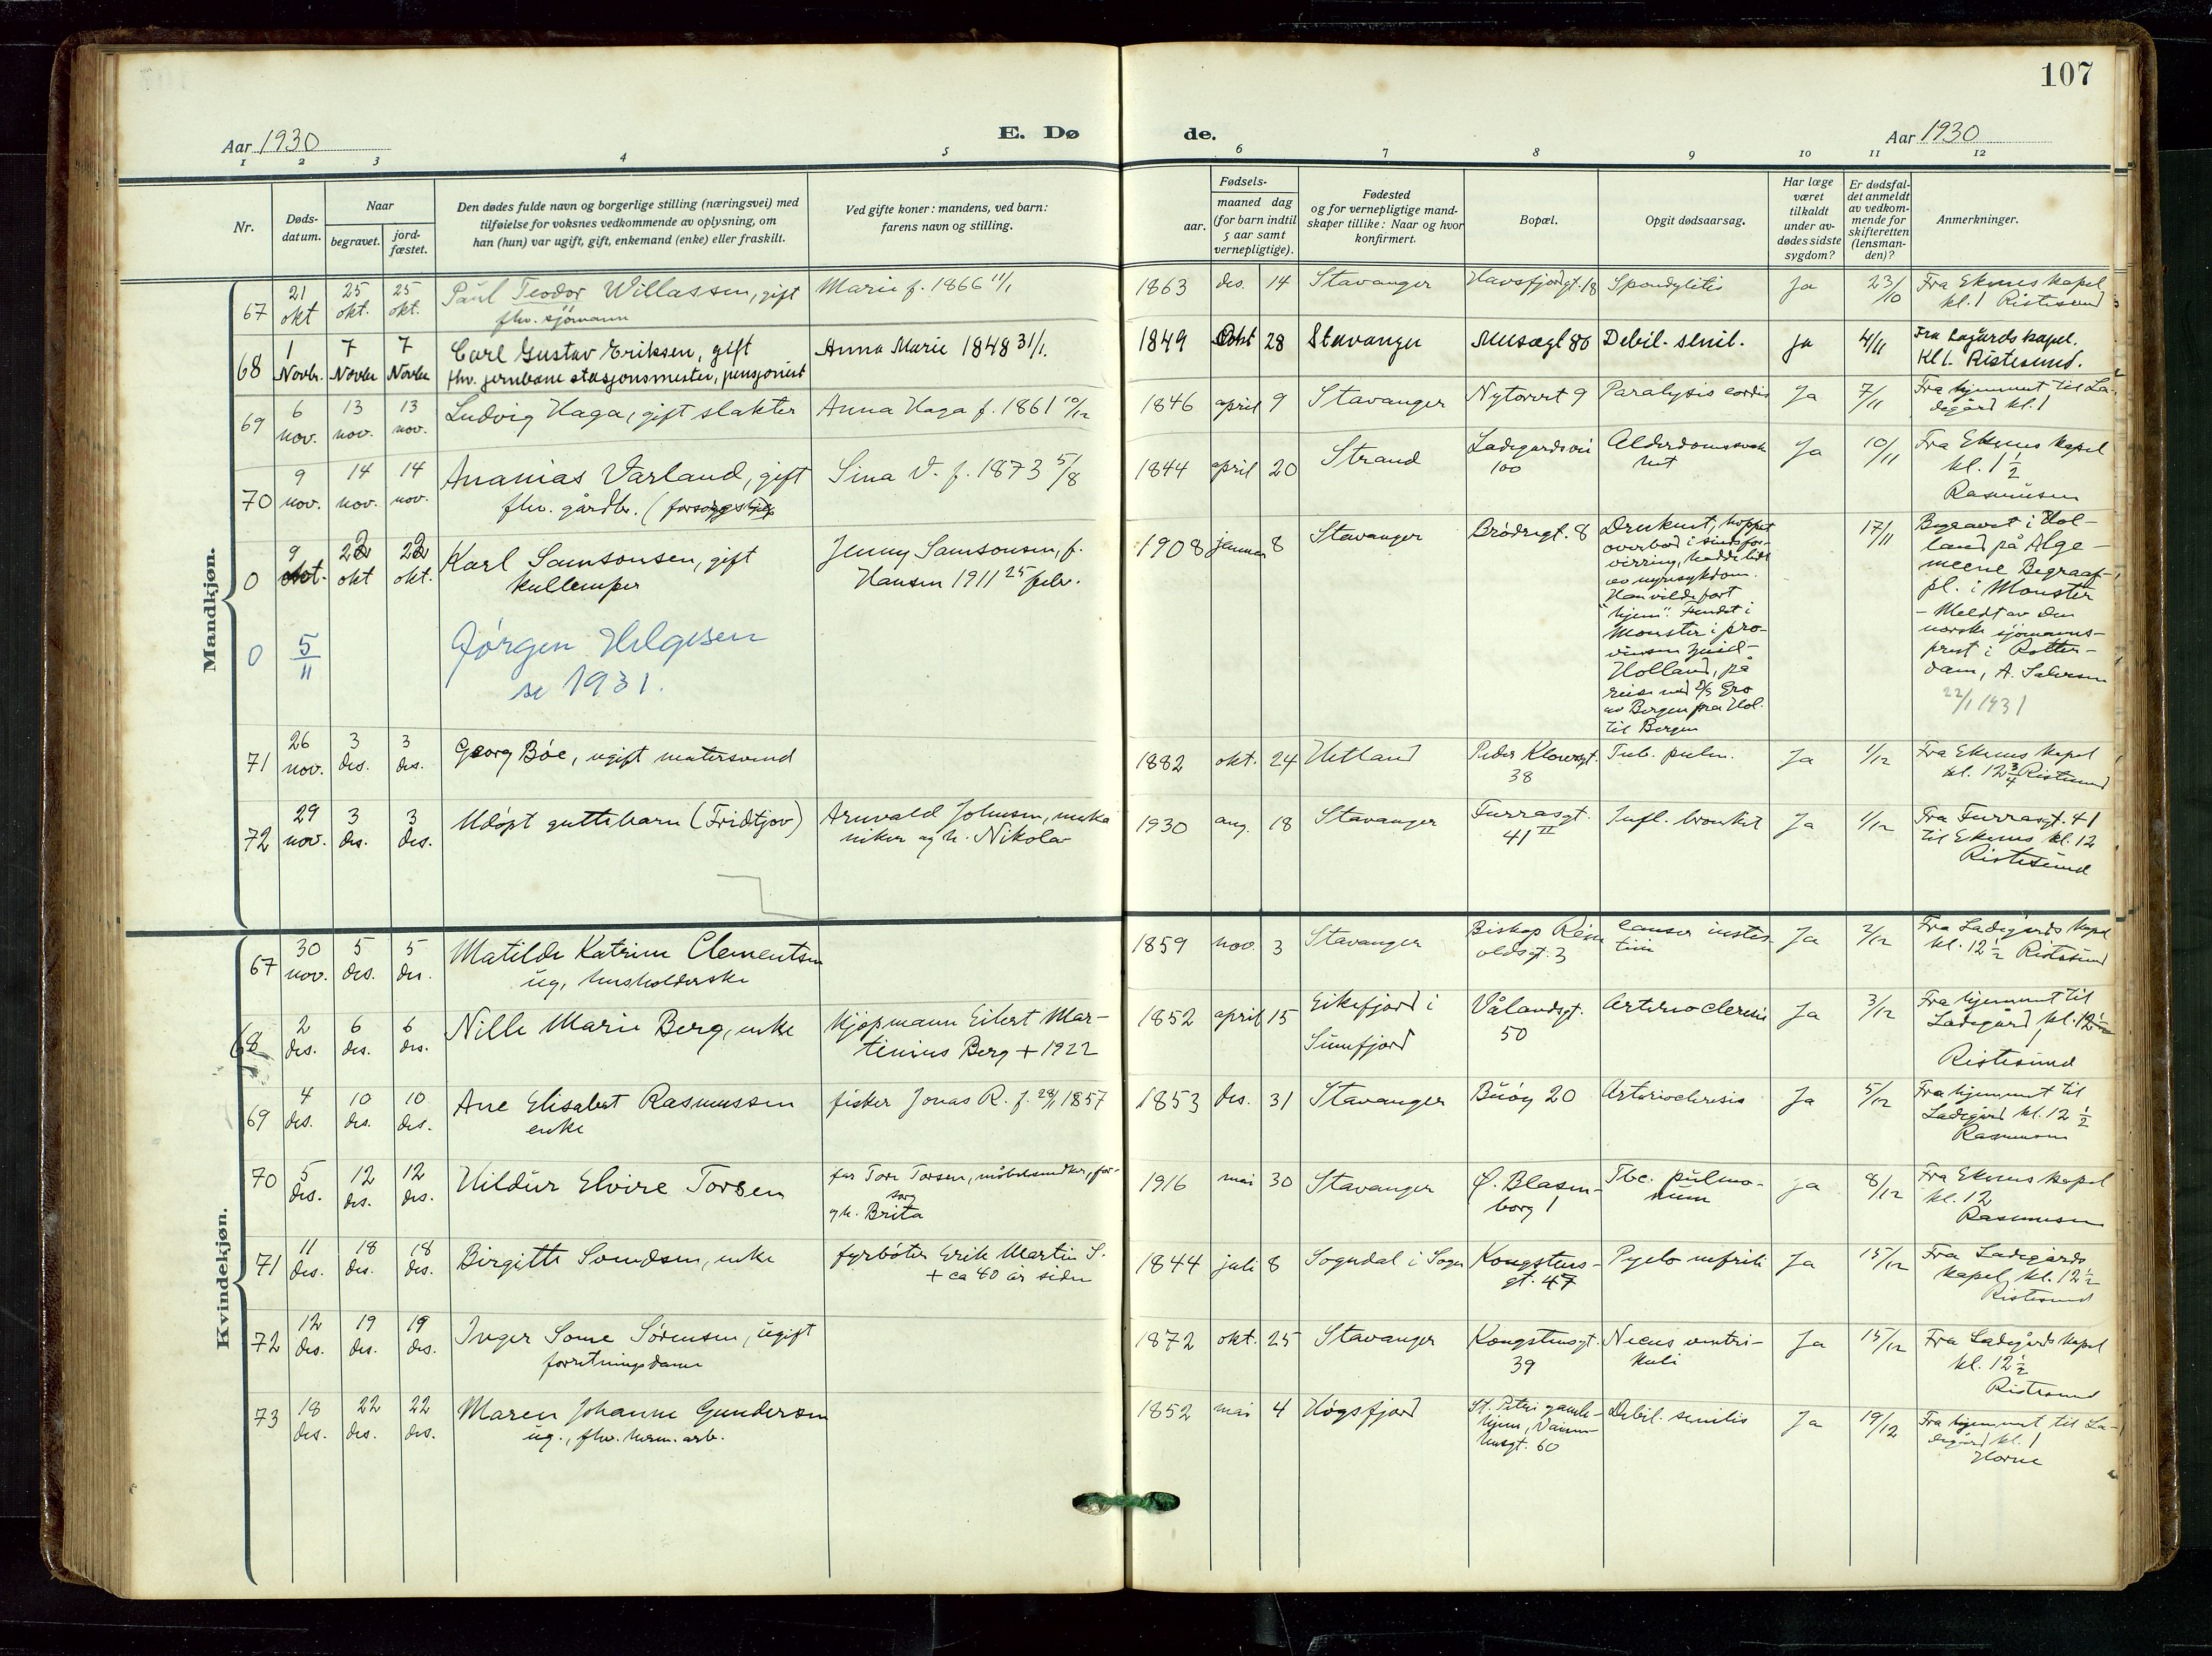 107
Aar 1930
E. Dø
de.
Aar 1930
1 2 3 4 5 6 7 8 9 10 11 12
Nr.
Døds-
datum.
Naar
begravet.
jord-
fæstet.
Den dødes fulde navn og borgerlige stilling (næringsvei) med
tilføielse for voksnes vedkommende av oplysning, om
han (hun) var ugift, gift, enkemand (enke) eller fraskilt.
Ved gifte koner: mandens, ved barn:
farens navn og stilling.
Fødsels-
aar.
maaned dag
(for barn indtil
5 aar samt
vernepligtige).
Fødested
og for vernepligtige mand-
skaper tillike: Naar og hvor
konfirmert.
Bopæl.
Opgit dødsaarsag.
Har læge
været
tilkaldt
under av-
dødes sidste
sygdom?
Er dødsfal-
det anmeldt
av vedkom-
mende for
skifteretten
(lensman-
den)?
Anmerkninger.
Mandkjøn.
67 21 okt 25 okt. 25 okt. Paul Teodor Willassen, gift
fhv. sjömann
Marie f. 1866 11/1
1863 des. 14 Stavanger Havsfjordgt. 18 Spondylitis Ja 23/10 Fra Ekenes kapel
kl. 1 Ristesund
68 1 Novbr. 7 Novbr 7 Novbr Carl Gustav Eriksen, gift
fhv. jernbane stasjonsmester, pensjonist
Anna Marie 1848 31/1.
1849 Okt 28 Stavanger Musægt 80 Debil. senil. Ja 4/11 Fra Lagårds kapel.
Kl 1. Ristesund.
69 6 nov. 13 nov. 13 nov. Ludvig Haga, gift slakter
Anna Haga f. 1861 10/12
1846 april 9 Stavanger Nytorvet 9 Paralysis cordis Ja 7/11 Fra hjemmet til La-
degård kl. 1
70 9 nov. 14 nov. 14 nov. Ananias Varland, gift
fhv. gårdbr. (forsorgshj.
Sina V. f. 1873 5/8
1844 april 20 Strand Ladegårdsvei
100
Alderdomssvak
het
Ja 10/11 Fra Ekenes kapel
kl. 1 1/2
Rasmussen
0 9 okt. 22 okt 22 okt. Karl Samsonsen, gift
kullemper
Jenny Samsonsen, f.
Hansen 1911 25 febr.
1908 januar 8 Stavanger Brödregt. 8 Druknet, hoppet
overbord i sindsfor-
virring, hadde lidt
av nyresykdom.
Han vilde fort
"hjem". Fundet i
Monster i pro-
vinsen Zuid-
Holland, på
reise med D/S Gro
av Bergen fra Hol.
til Bergen
17/11 Begravet i Hol-
land på Alge-
meene Begraaf-
pl. i Monster
- Meldt av den
norske sjömanns-
prest i Rotter-
dam, A. Salvesen
22/1 1931
0 5/11 Jørgen Helgesen
se 1931.
71 26 nov. 3 des. 3 des. Georg Böe, ugift matersvend
1882 okt. 24 Hetland Peder Klowsgt.
38
Tub. pulm. Ja 1/12 Fra Ekenes kapel
kl. 12 3/4 Ristesund
72 29 nov. 3 des. 3 des. Udöpt guttebarn (Fridtjov)
Arnvald Johnsen, meka
niker og h. Nikola
1930 aug. 18 Stavanger Furrasgt.
41 II
Infl. bronkit Ja 1/12 Fra Furrasgt. 41
til Ekenes kl. 12
Ristesund
Kvindekjøn.
67 30 nov. 5 des. 5 des. Matilde Katrine Clementsen
ug, husholderske
1859 nov. 3 Stavanger Biskop Rein
oldsgt. 3
cancer intes
tini
Ja 2/12 Fra Ladegårds kapel
kl. 12 1/2 Ristesund
68 2 des. 6 des. 6 des. Nille Marie Berg, enke
Kjöpmann Eilert Mar-
tinius Berg + 1922
1852 april 15 Eikefjord i
Sunnfjord
Vålandsgt.
50
Arteriosclerosis Ja 3/12 Fra hjemmet til
Ladegård, kl. 12 1/2
Ristesund
69 4 des. 10 des. 10 des. Ane Elisabet Rasmussen
enke
fisker Jonas R. f. 29/1 1857
1853 des. 31 Stavanger Buöy 20 Arteriosclerosis Ja 5/12 Fra hjemmet til
Ladegård kl. 12 1/2
Rasmussen
70 5 des. 12 des. 12 des. Hildur Elvire Torsen
far Tore Torsen, möbelsnedker, for-
sorg
og h. Brita
1916 mai 30 Stavanger Ø. Blasen-
borg 1
Tbc. pulmo-
num
Ja 8/12 Fra Ekenes kapel
kl. 12
Rasmussen
71 11 des. 18 des. 18 des. Birgitte Svendsen, enke
fyrböter Erik Martin S.
+ ca 40 år siden
1844 juli 8 Sogndal i Sogn Kongstens-
gt. 47
Pyelo nefriti Ja 15/12 Fra Ladegårds
kapel, kl. 12 1/2
Ristesund
72 12 des. 19 des. 19 des. Inger Sørensen, ugift
forretningsdame
1872 okt. 25 Stavanger Kongstensgt.
39
ventri-
kuli
Ja 15/12 Fra Ladegårds kapel
kl. 12 1/2
Ristesund
73 18 des. 22 des. 22 des. Maren Johanne Gundersen
ug., fhv. herm. arb.
1852 mai 4 Högsfjord St. Petri gamle-
hjem, Vaisen-
husgt. 60
Debil. senilis Ja 19/12 Fra hjemmet til La-
degård kl. 1
Horne